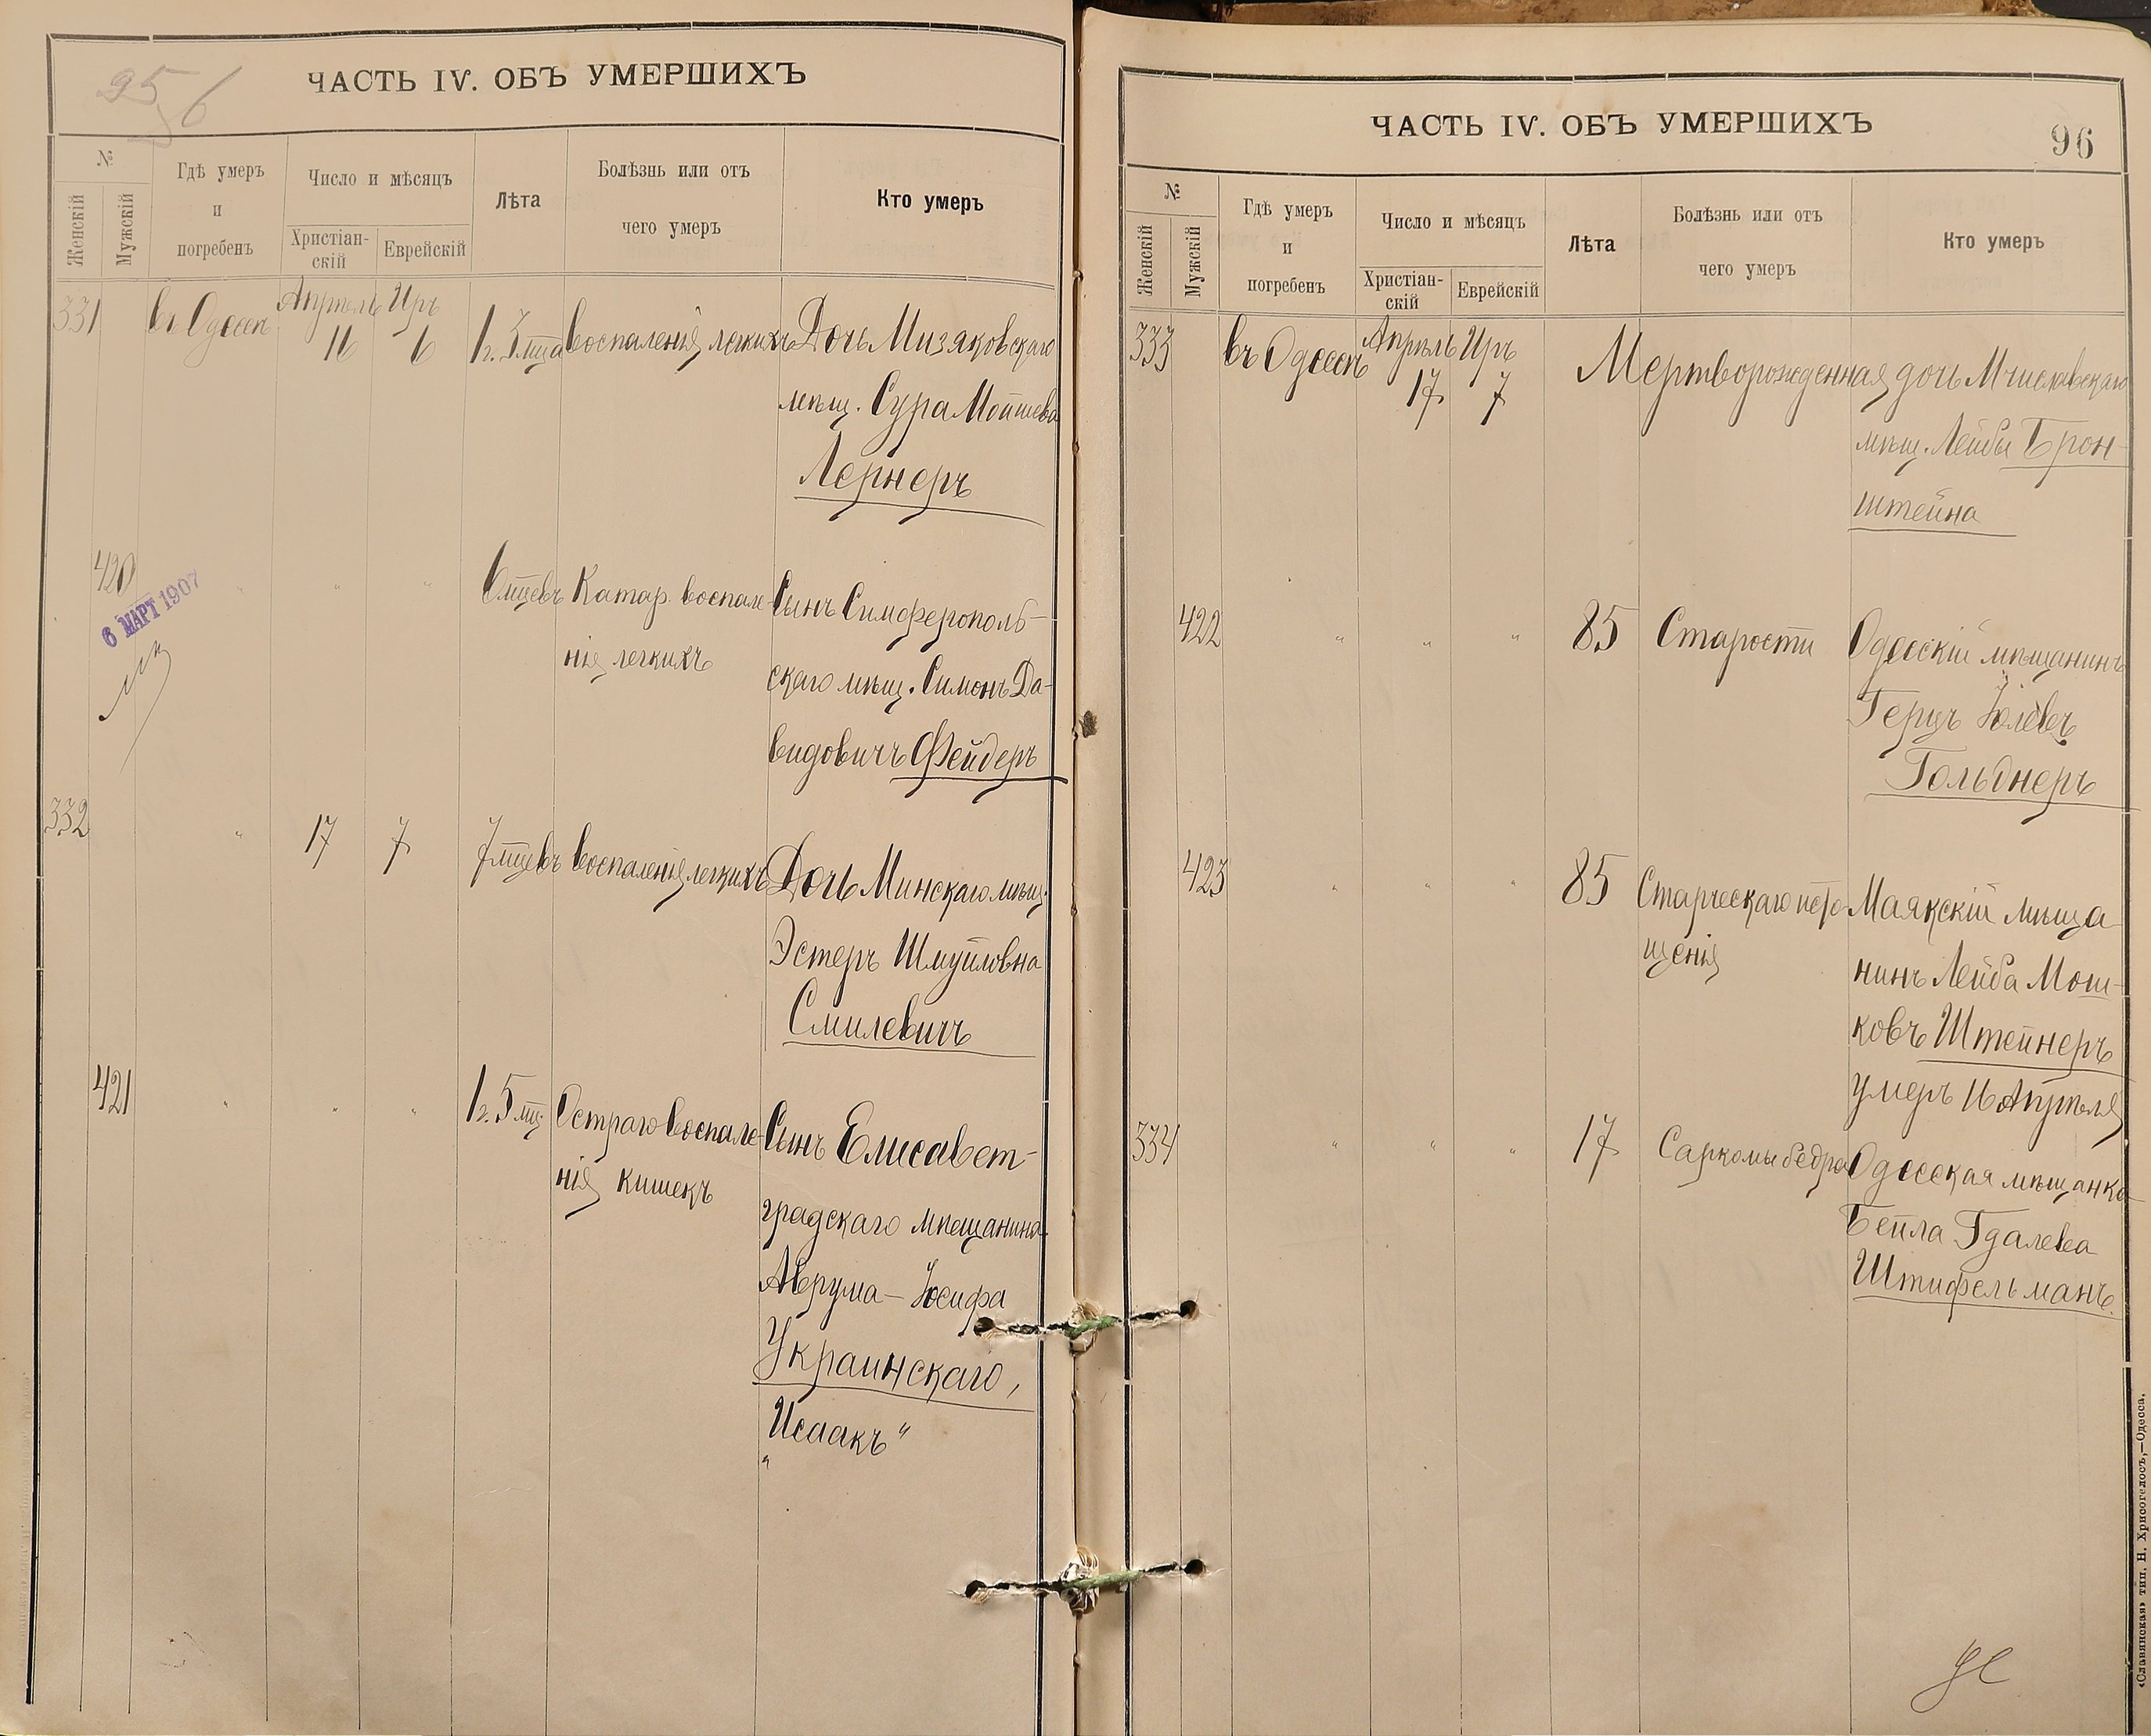 95 б
ЧАСТЬ IV. ОБЪ УМЕРШИХЪ
№
Женскій
Мужскій
Гдѣ умеръ
и
погребенъ
Число и мѣсяцъ
Христіан-
скій
Еврейскій
Лѣта
Болѣзнь или отъ
чего умеръ
Кто умеръ
331 въ Одессѣ Апрѣль 16 Иръ 6 1 г. 3 мца воспаленія легкихъ Дочь Мизяковскаго
мѣщ. Сура Мошева
Лернеръ
420 " " " 6 мцевъ Катар. воспале- Сынъ Симферополь-
нія легкихъ скаго мѣщ. Симонъ Да-
видовичъ Фейдеръ
6 МАРТ 1907
332 " 17 7 7 мцевъ воспаленія легкихъ Дочь Минскаго мѣщ.
Эстеръ Шмуйловна
Смилевичъ
421 " " " 1 г. 5 мц. Остраго воспале- Сынъ Елисавет-
нія кишекъ градскаго мѣщанина
Аврума-Іосифа
Украинскаго,
"Исаакъ"
ЧАСТЬ IV. ОБЪ УМЕРШИХЪ
96
№
Женскій
Мужскій
Гдѣ умеръ
и
погребенъ
Число и мѣсяцъ
Христіан-
скій
Еврейскій
Лѣта
Болѣзнь или отъ
чего умеръ
Кто умеръ
333 въ Одессѣ Апрѣль 17 Иръ 7 Мертворожденная дочь Мчиславскаго
мѣщ. Лейбы Брон-
штейна
422 " " " 85 Старости Одесскій мѣщанинъ
Герцъ Іолевъ
Гольднеръ
423 " " " 85 Старческаго исто- Маякскій мѣща
щенія нинъ Лейба Мош-
ковъ Штейнеръ
умеръ 16 Апрѣля
334 " " " 17 Саркомы бедра Одесская мѣщанка
Бейла Гдалева
Штифельманъ.
«Славянская» тип. Н. Хрисогелосъ,—Одесса.